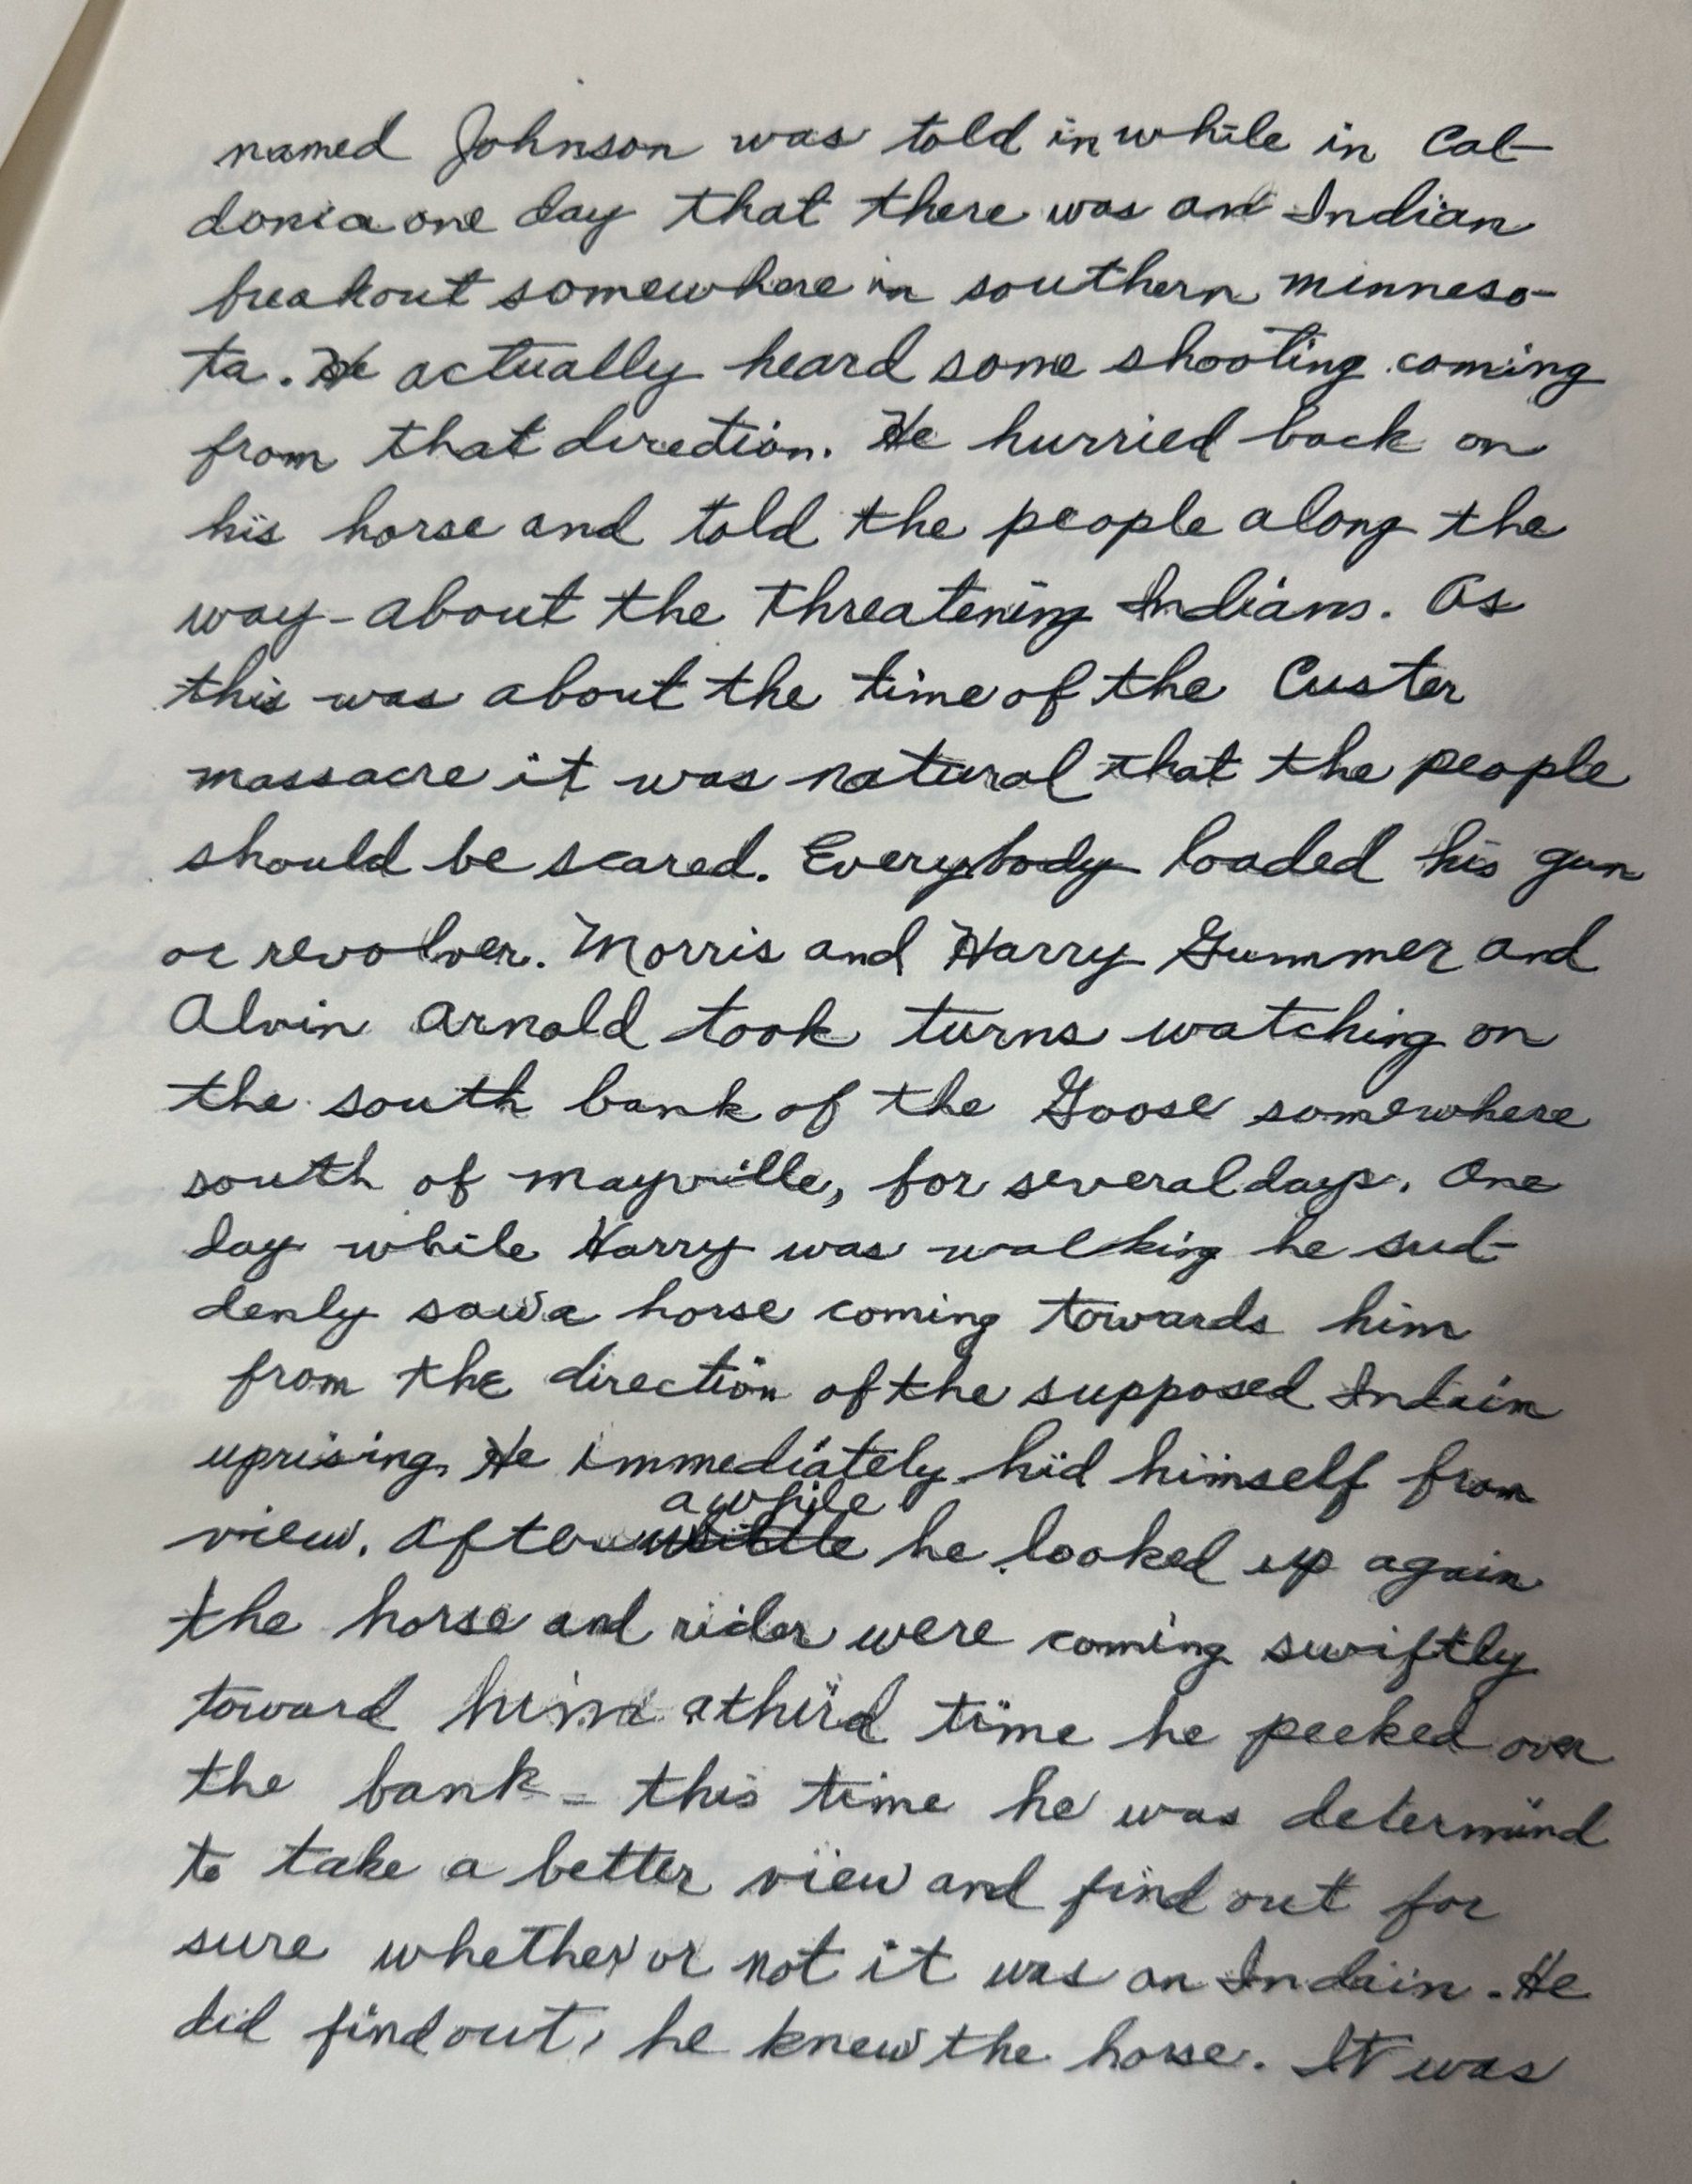 named Johnson was told in while in Cal-
donia one day that there was an Indian
breakout somewhere in southern minneso-
ta. He actually heard some shooting coming
from that direction. He hurried back on
his horse and told the people along the
way - about the threatening Indians. As
this was about the time of the Custer
massacre it was natural that the people
should be scared. Everybody loaded his gun
or revolver. Morris and Harry Gummer and
Alvin Arnold took turns watching on
the south bank of the Goose somewhere
south of mayville, for several days. One
day while Harry was walking he sud-
denly saw a horse coming towards him
from the direction of the supposed Indain
uprising. He immediately hid himself from
view. After awhile he looked up again
the horse and rider were coming swiftly
toward him a third time he peeked over
the bank - this time he was determind
to take a better view and find out for
sure whether or not it was an Indain. He
did find out, he knew the horse. It was